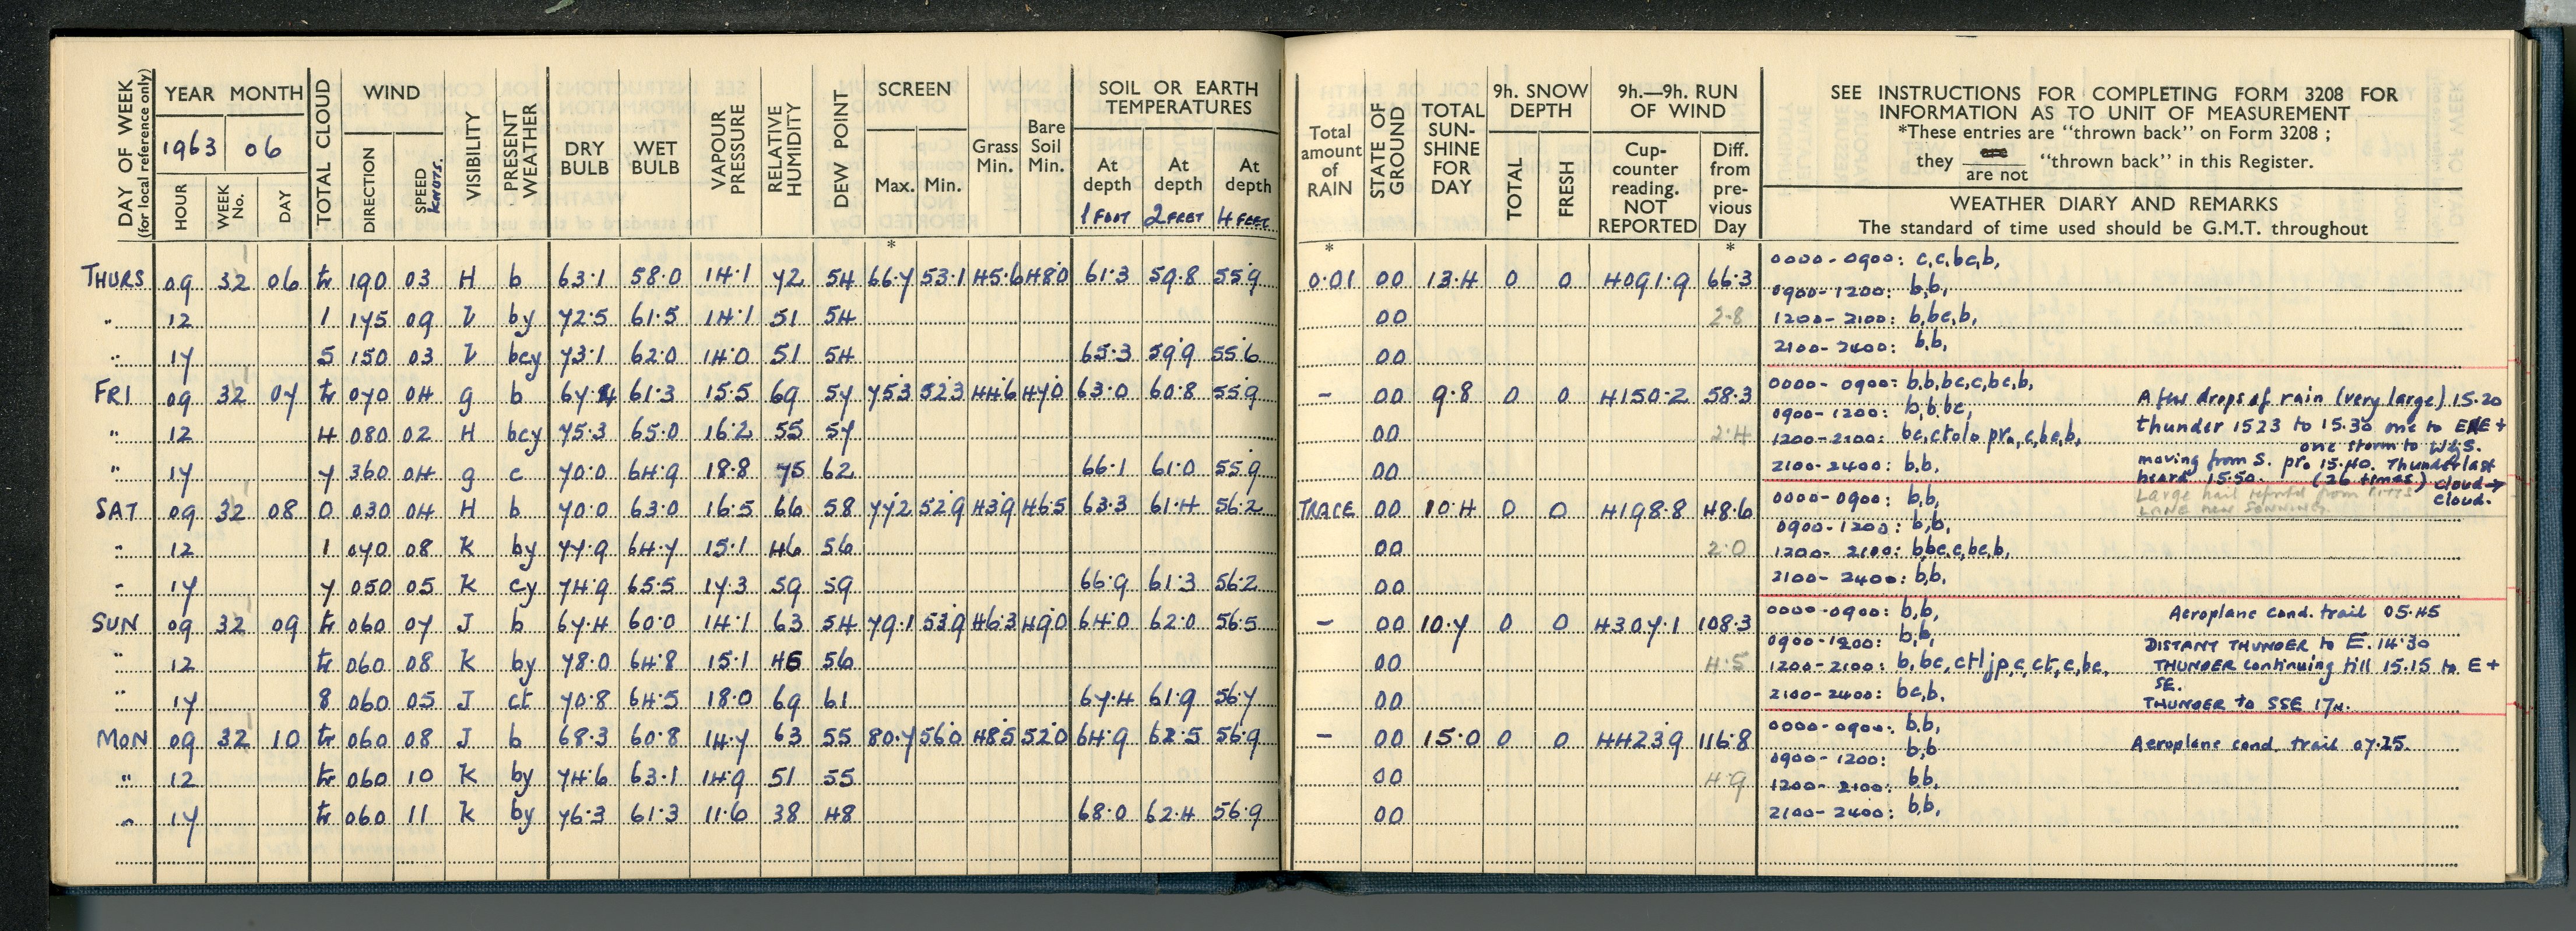 DAY OF WEEK (for local reference only) YEAR MONTH TOTAL CLOUD WIND VISIBILITY PRESENT WEATHER DRY BULB WET BULB VAPOUR PRESSURE RELATIVE HUMIDITY DEW POINT SCREEN Grass Min. Bare Soil Min. SOIL OR EARTH TEMPERATURES
1963 06
HOUR WEEK No. DAY DIRECTION SPEED KNOTS. Max. Min. At depth At depth At depth
1 FOOT 2 FEET 4 FEET
*
THURS 09 32 06 tr 190 03 H b 63.1 58.0 14.1 72 54 66.7 53.1 45.6 48.0 61.3 59.8 55.9
" 12 1 175 09 by 72.5 61.5 14.1 51 54
" 17 5 150 03 bcy 73.1 62.0 14.0 51 54 65.3 59.9 55.6
FRI 09 32 07 tr 070 04 g b 67.4 61.3 15.5 69 57 75.3 52.3 44.6 47.0 63.0 60.8 55.9
" 12 4 080 02 H bcy 75.3 65.0 16.2 55 57
" 17 7 360 04 g c 70.0 64.9 18.8 75 62 66.1 61.0 55.9
SAT 09 32 08 0 030 04 H b 70.0 63.0 16.5 66 58 77.2 52.9 43.9 46.5 63.3 61.4 56.2
" 12 1 070 08 K by 77.9 64.7 15.1 46 56
" 17 7 050 05 K cy 74.9 65.5 17.3 59 59 66.9 61.3 56.2
SUN 09 32 09 tr 060 07 J b 67.4 60.0 14.1 63 54 79.1 53.9 46.3 49.0 64.0 62.0 56.5
" 12 tr 060 08 K by 78.0 64.8 15.1 46 56
" 17 8 060 05 J ct 70.8 64.5 18.0 69 61 67.4 61.9 56.7
MON 09 32 10 tr 060 08 J b 68.3 60.8 14.7 63 55 80.7 56.0 48.5 52.0 64.9 62.5 56.9
" 12 tr 060 10 K by 74.6 63.1 14.9 51 55
" 17 tr 060 11 K by 76.3 61.3 11.6 38 48 68.0 62.4 56.9
Total amount of RAIN STATE OF GROUND TOTAL SUN-SHINE FOR DAY 9h. SNOW DEPTH 9h.—9h. RUN OF WIND
TOTAL FRESH Cup-counter reading. NOT REPORTED Diff. from pre-vious Day
SEE INSTRUCTIONS FOR COMPLETING FORM 3208 FOR
INFORMATION AS TO UNIT OF MEASUREMENT
*These entries are "thrown back" on Form 3208 ;
they are not "thrown back" in this Register.
WEATHER DIARY AND REMARKS
The standard of time used should be G.M.T. throughout
* *
0.01 00 13.4 0 0 4091.9 66.3 0000-0900: c,c,bc,b,
0900-1200: b,b,
00 2.8 1200-2100: b,bc,b,
00 2100-2400: b,b,
- 00 9.8 0 0 4150.2 58.3 0000-0900: b,b,bc,c,bc,b, A few drops of rain (very large) 15.20
0900-1200: b,b,bc,
00 2.4 1200-2100: bc,ctolo pro,c,bc,b, thunder 1523 to 15.30 one to ENE +
one storm to W&S.
00 2100-2400: b,b, moving from S. pro 15.40. Thunder last
heard 15.50. (26 times) cloud→
cloud.
TRACE 00 10.4 0 0 4198.8 48.6 0000-0900: b,b, Large hail reported from
LANE near SONNING.
0900-1200: b,b,
00 2.0 1200-2100: b,bc,c,bc,b,
00 2100-2400: b,b,
- 00 10.7 0 0 4307.1 108.3 0000-0900: b,b, Aeroplane cond. trail 05.45
0900-1200: b,b, DISTANT THUNDER to E. 14.30
00 4.5 1200-2100: b,bc,ctljp,c,ct,c,bc, THUNDER continuing till 15.15 to E +
SE.
00 2100-2400: bc,b. THUNDER to SSE 17h.
- 00 15.0 0 0 4423.9 116.8 0000-0900: b,b, Aeroplane cond. trail 07.25.
0900-1200: b,b
00 4.9 1200-2100: b,b,
00 2100-2400: b,b,